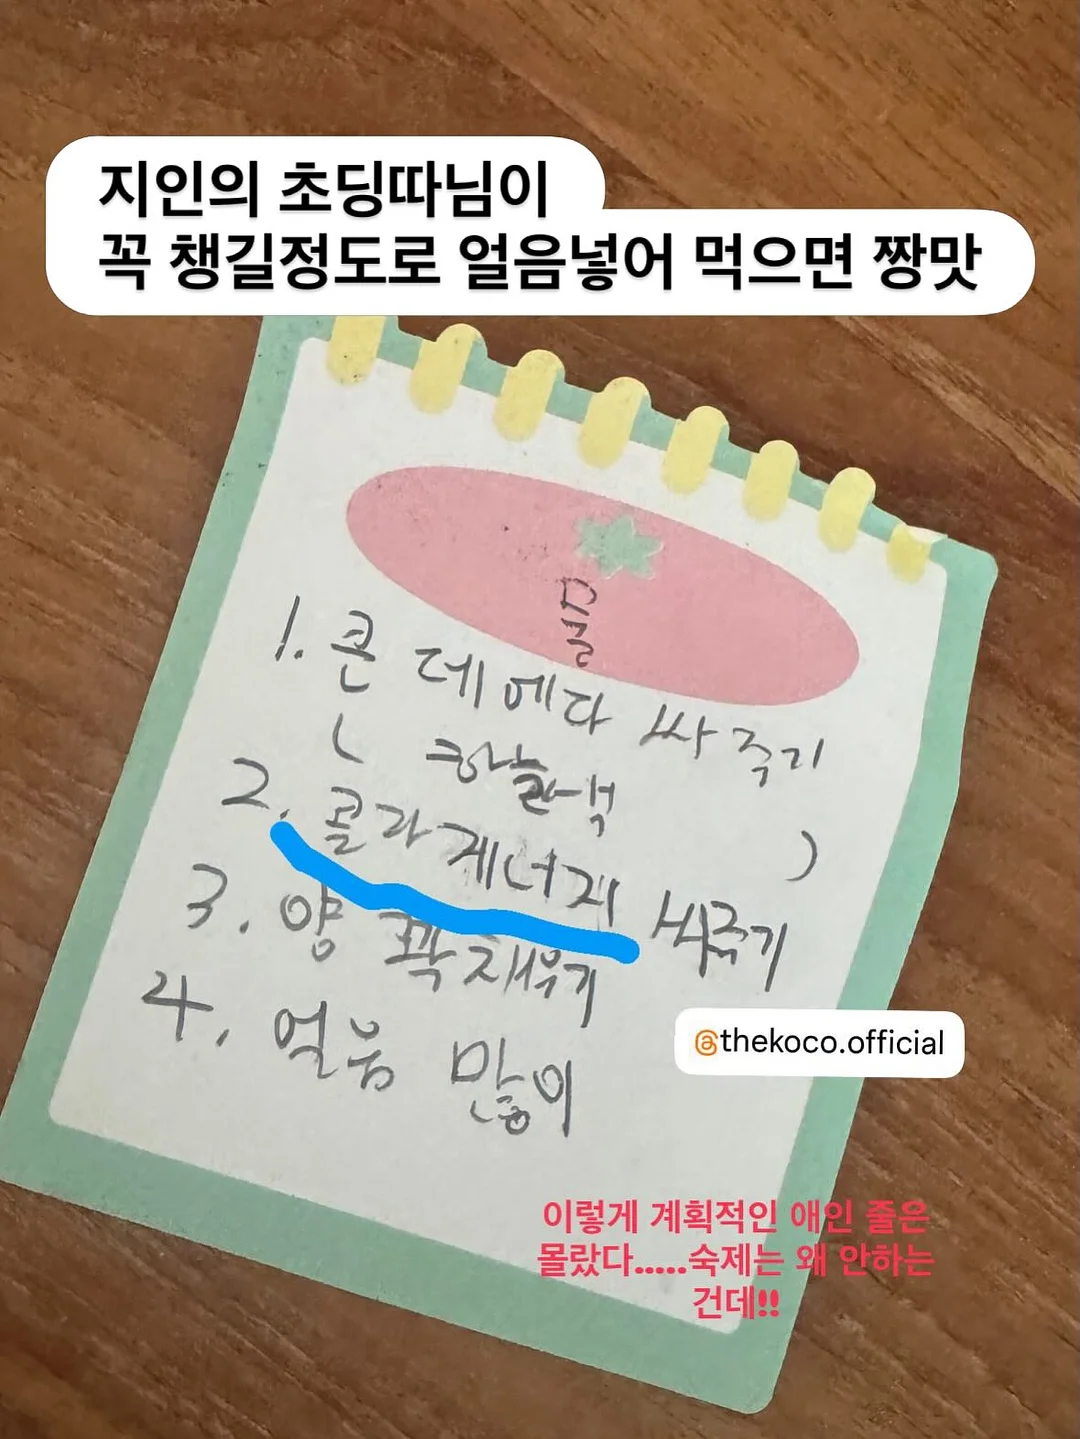 지인의 초딩따님이
꼭 챙길정도로 얼음넣어 먹으면 짱맛
물
1. 큰 데에다 싸주기
( 하늘색 )
2. 콜라제너지 싸주기
3. 양 꽉 채우기
4. 얼음 많이
@thekoco.official
이렇게 계획적인 애인 줄은
몰랐다.....숙제는 왜 안하는
건데!!